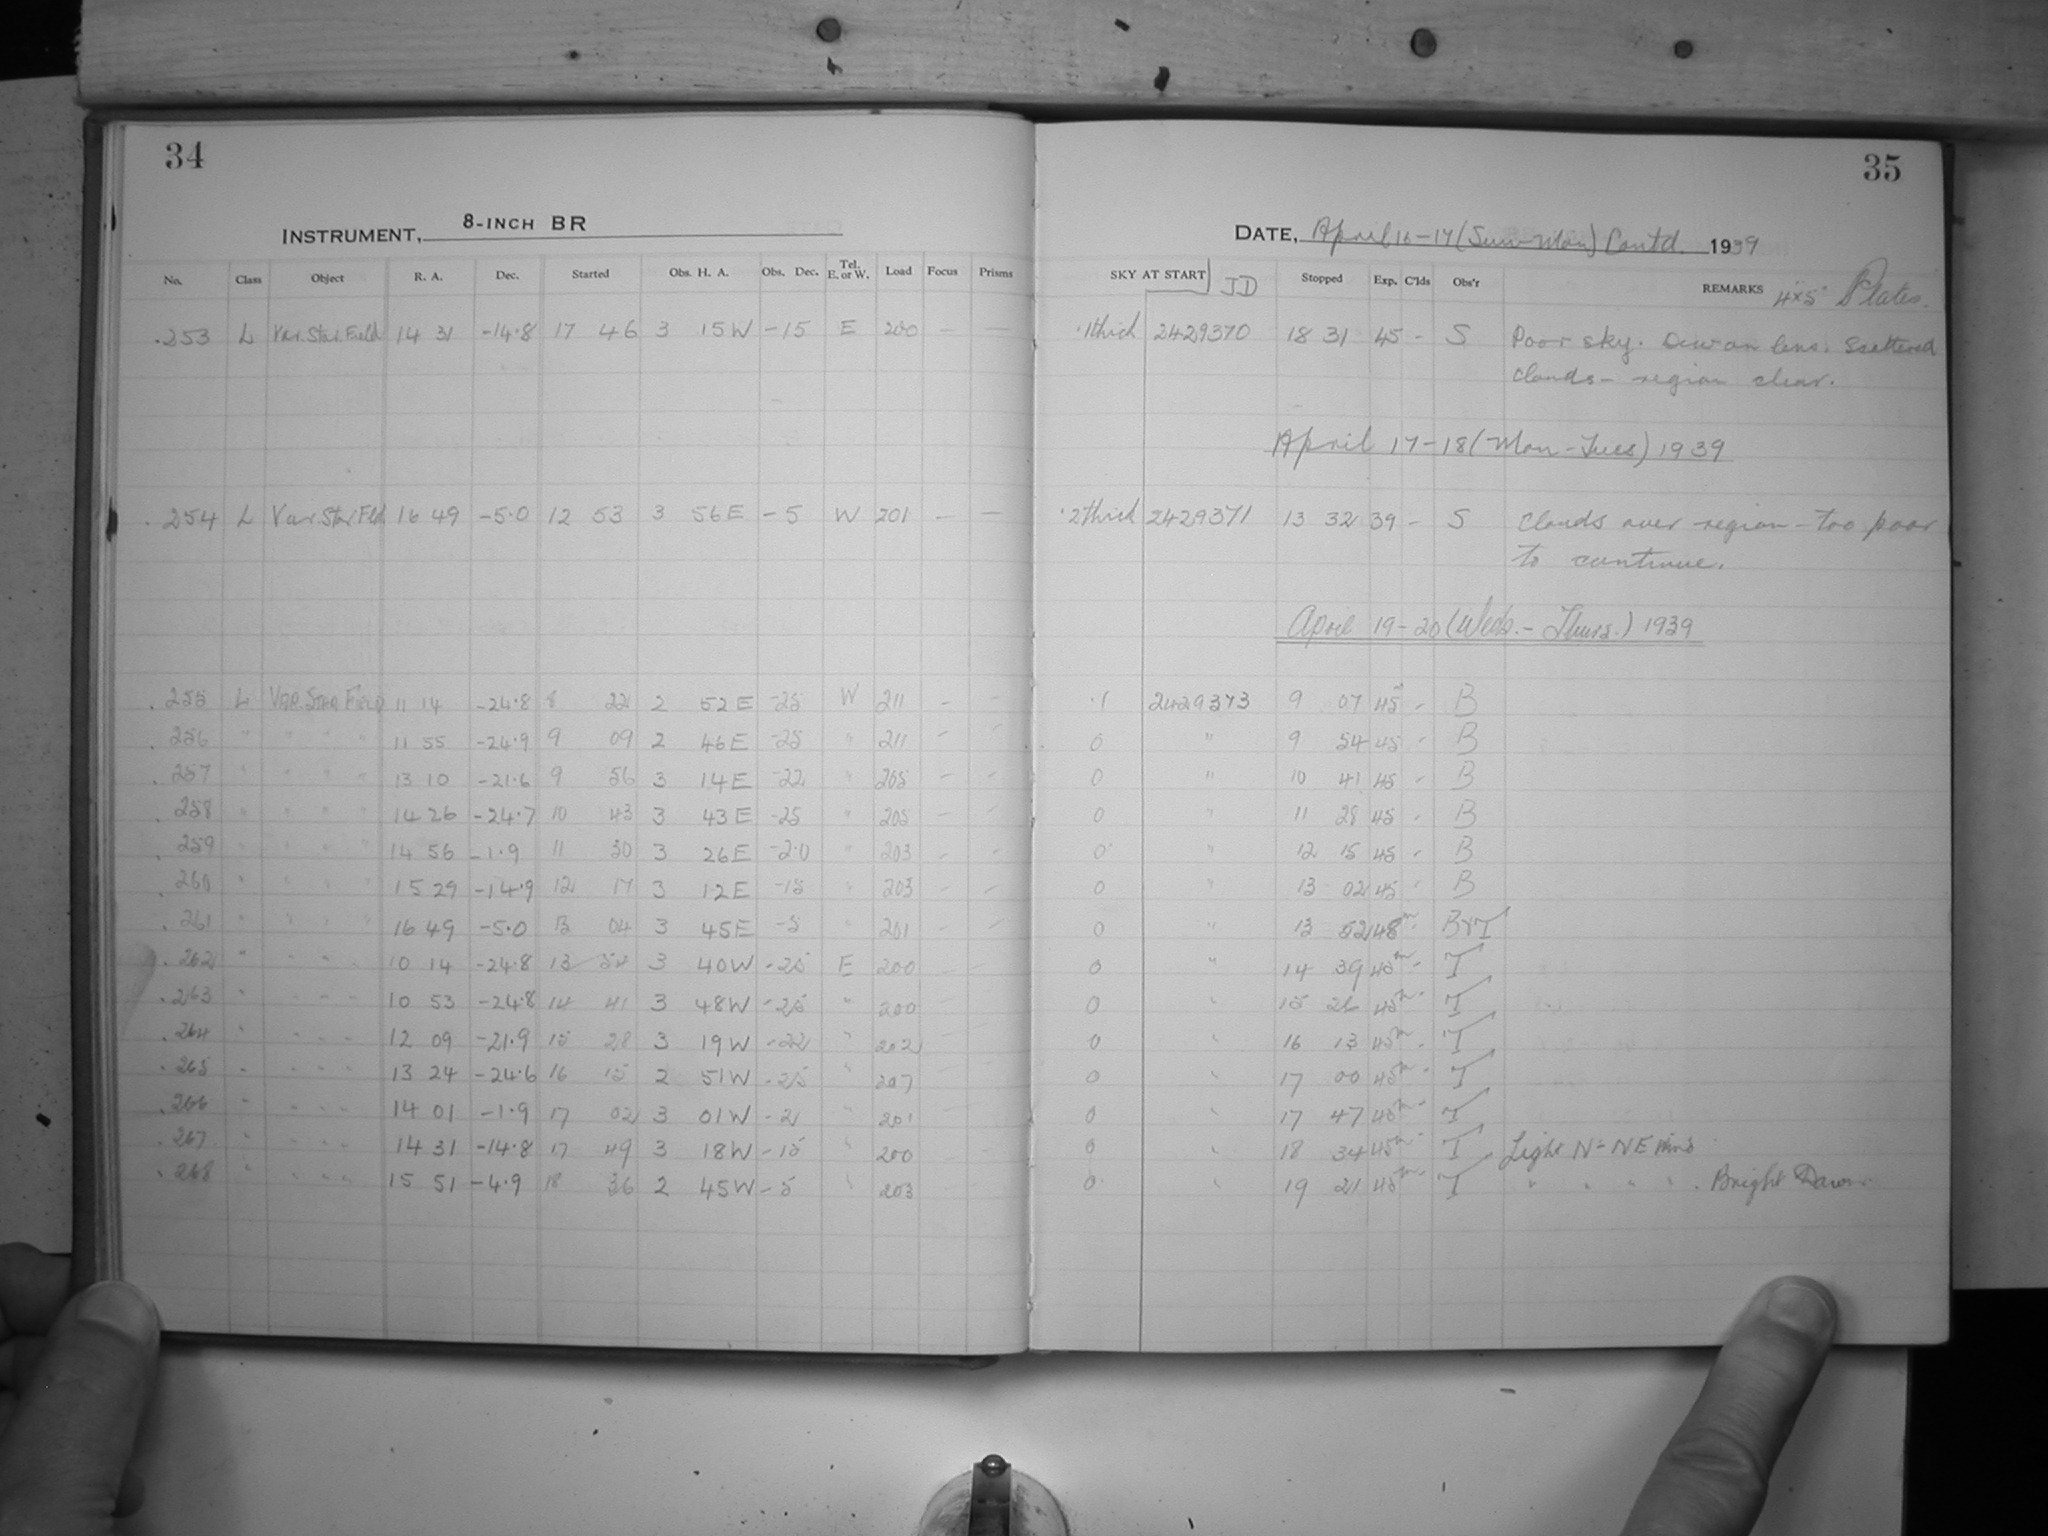 34
INSTRUMENT, 8-INCH BR
No. Class Object R. A. Dec. Started Obs. H. A. Obs. Dec. Tel. E. or W. Load Focus Prisms
.253 L Var. Star. Field 14 31 -14.8 17 46 3 15W -15 E 200 — —
.254 L Var. Star Fld 16 49 -5.0 12 53 3 56E -5 W 201 — —
.255 L VAR. STAR FIELD 11 14 -24.8 8 22 2 52E -25 W 211 - -
.256 " " " " 11 55 -24.9 9 09 2 46E -25 " 211 - -
.257 " " " " 13 10 -21.6 9 56 3 14E -22 " 205 - -
.258 " " " " 14 26 -24.7 10 43 3 43E -25 " 205 - -
.259 " " " " 14 56 -1.9 11 30 3 26E -2.0 " 203 - -
.260 " " " " 15 29 -14.9 12 17 3 12E -15 " 203 - -
.261 " " " " 16 49 -5.0 13 04 3 45E -5 " 201 - -
.262 " " " " 10 14 -24.8 13 54 3 40W -25 E 200 - -
.263 " " " " 10 53 -24.8 14 41 3 48W -25 " 200
.264 " " " " 12 09 -21.9 15 28 3 19W -22 " 202
.265 " " " " 13 24 -24.6 16 15 2 51W -25 " 207
.266 " " " " 14 01 -1.9 17 02 3 01W -2 " 201
.267 " " " " 14 31 -14.8 17 49 3 18W -15 " 200
.268 " " " " 15 51 -4.9 18 36 2 45W -5 " 203
35
DATE, April 16-17 (Sun-Mon) Contd. 1939
SKY AT START JD Stopped Exp. C'lds Obs'r REMARKS 4x5" Plates.
.1 thick 2429370 18 31 45 - S Poor sky. Dew on lens. Scattered
clouds - region clear.
April 17-18 (Mon-Tues) 1939
.2 thick 2429371 13 32 39 - S Clouds over region - too poor
to continue.
April 19-20 (Weds.-Thurs.) 1939
.1 2429373 9 07 45 - B
0 " 9 54 45 - B
0 " 10 41 45 - B
0 " 11 28 45 - B
0 " 12 15 45 - B
0 " 13 02 45 - B
0 " 13 52 48m - B&T
0 " 14 39 45m - T
0 " 15 26 45m - T
0 " 16 13 45m - T
0 " 17 00 45m - T
0 " 17 47 45m - T
0 " 18 34 45m - T Light N-NE Wind
0 " 19 21 45m - T " " " " . Bright Dawn.